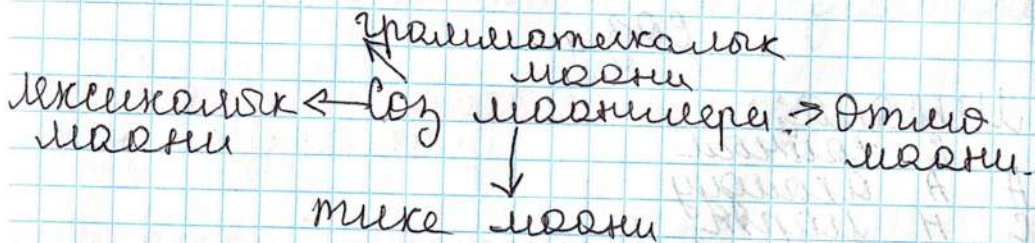 грамматикалык
маани
лексикалык ← Соз маанилери. → Өтмө
маани маани.
↓
тике маани